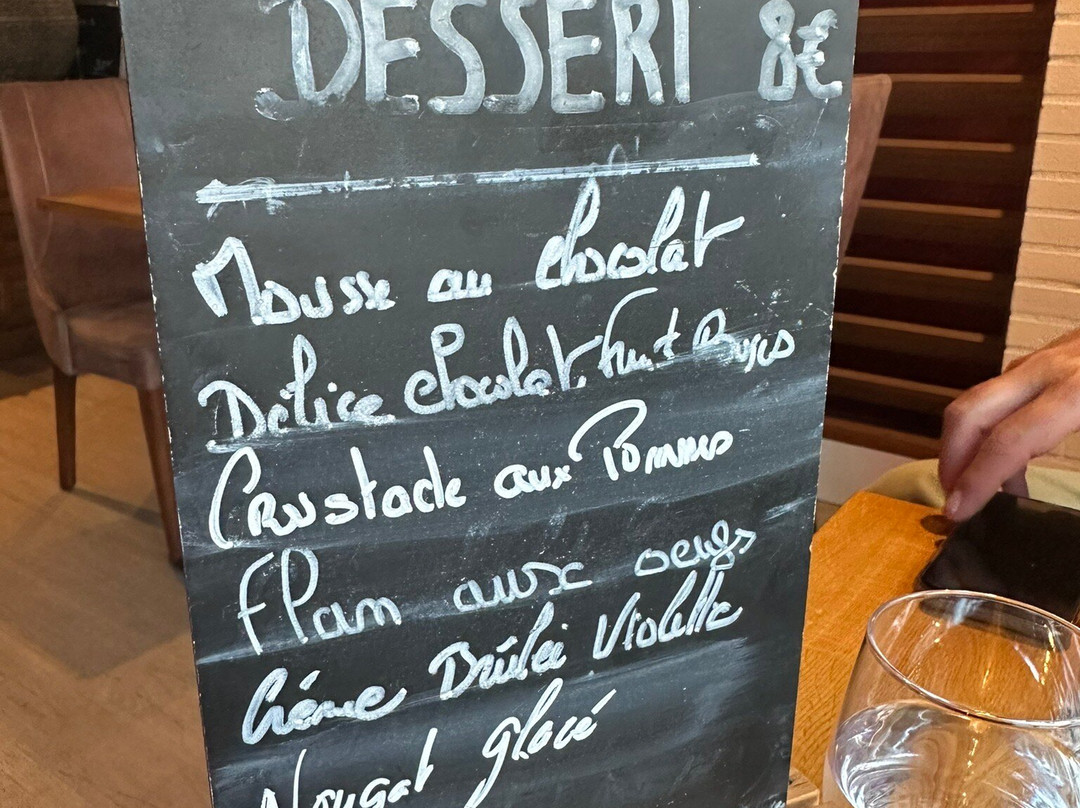 DESSERT 8€
Mousse au chocolat
Délice chocolat, Fruit Rouges
Crustade aux Pommes
Flan aux oeufs
Crème Brûlée Violette
Nougat glacé